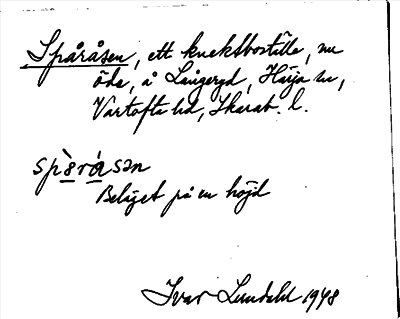 Spåråsen, ett knektboställe, nu
öde, å Långeryd, Härja sn,
Vartofta hd, Skarab. l.
spèrásən
Beläget på en höjd
Ivar Lundahl 1948